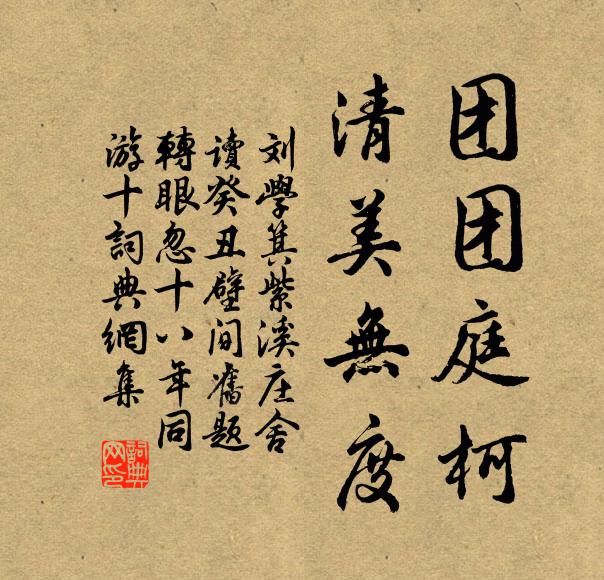 团团庭柯
清美無度
刘學箕紫溪庄舍
讀癸丑壁间舊题
轉眼忽十八年同
游十詞典網集
詞典
网印